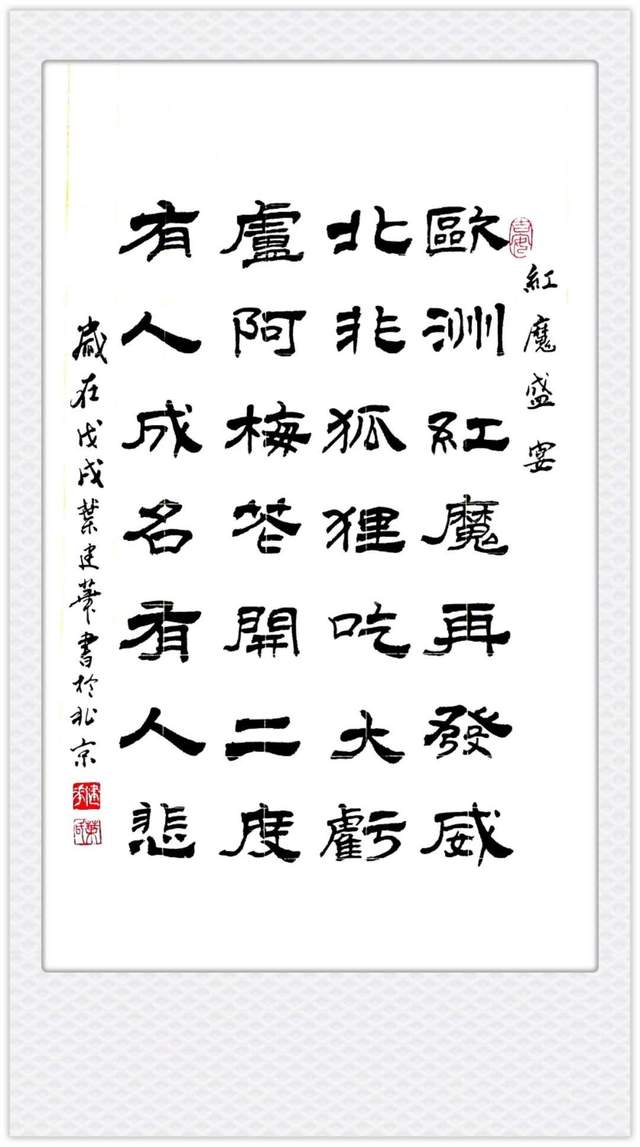 紅魔盛宴
歐洲紅魔再發威
北非狐狸吃大虧
盧阿梅花開二度
有人成名有人悲
歲在戊戌葉建華書於北京